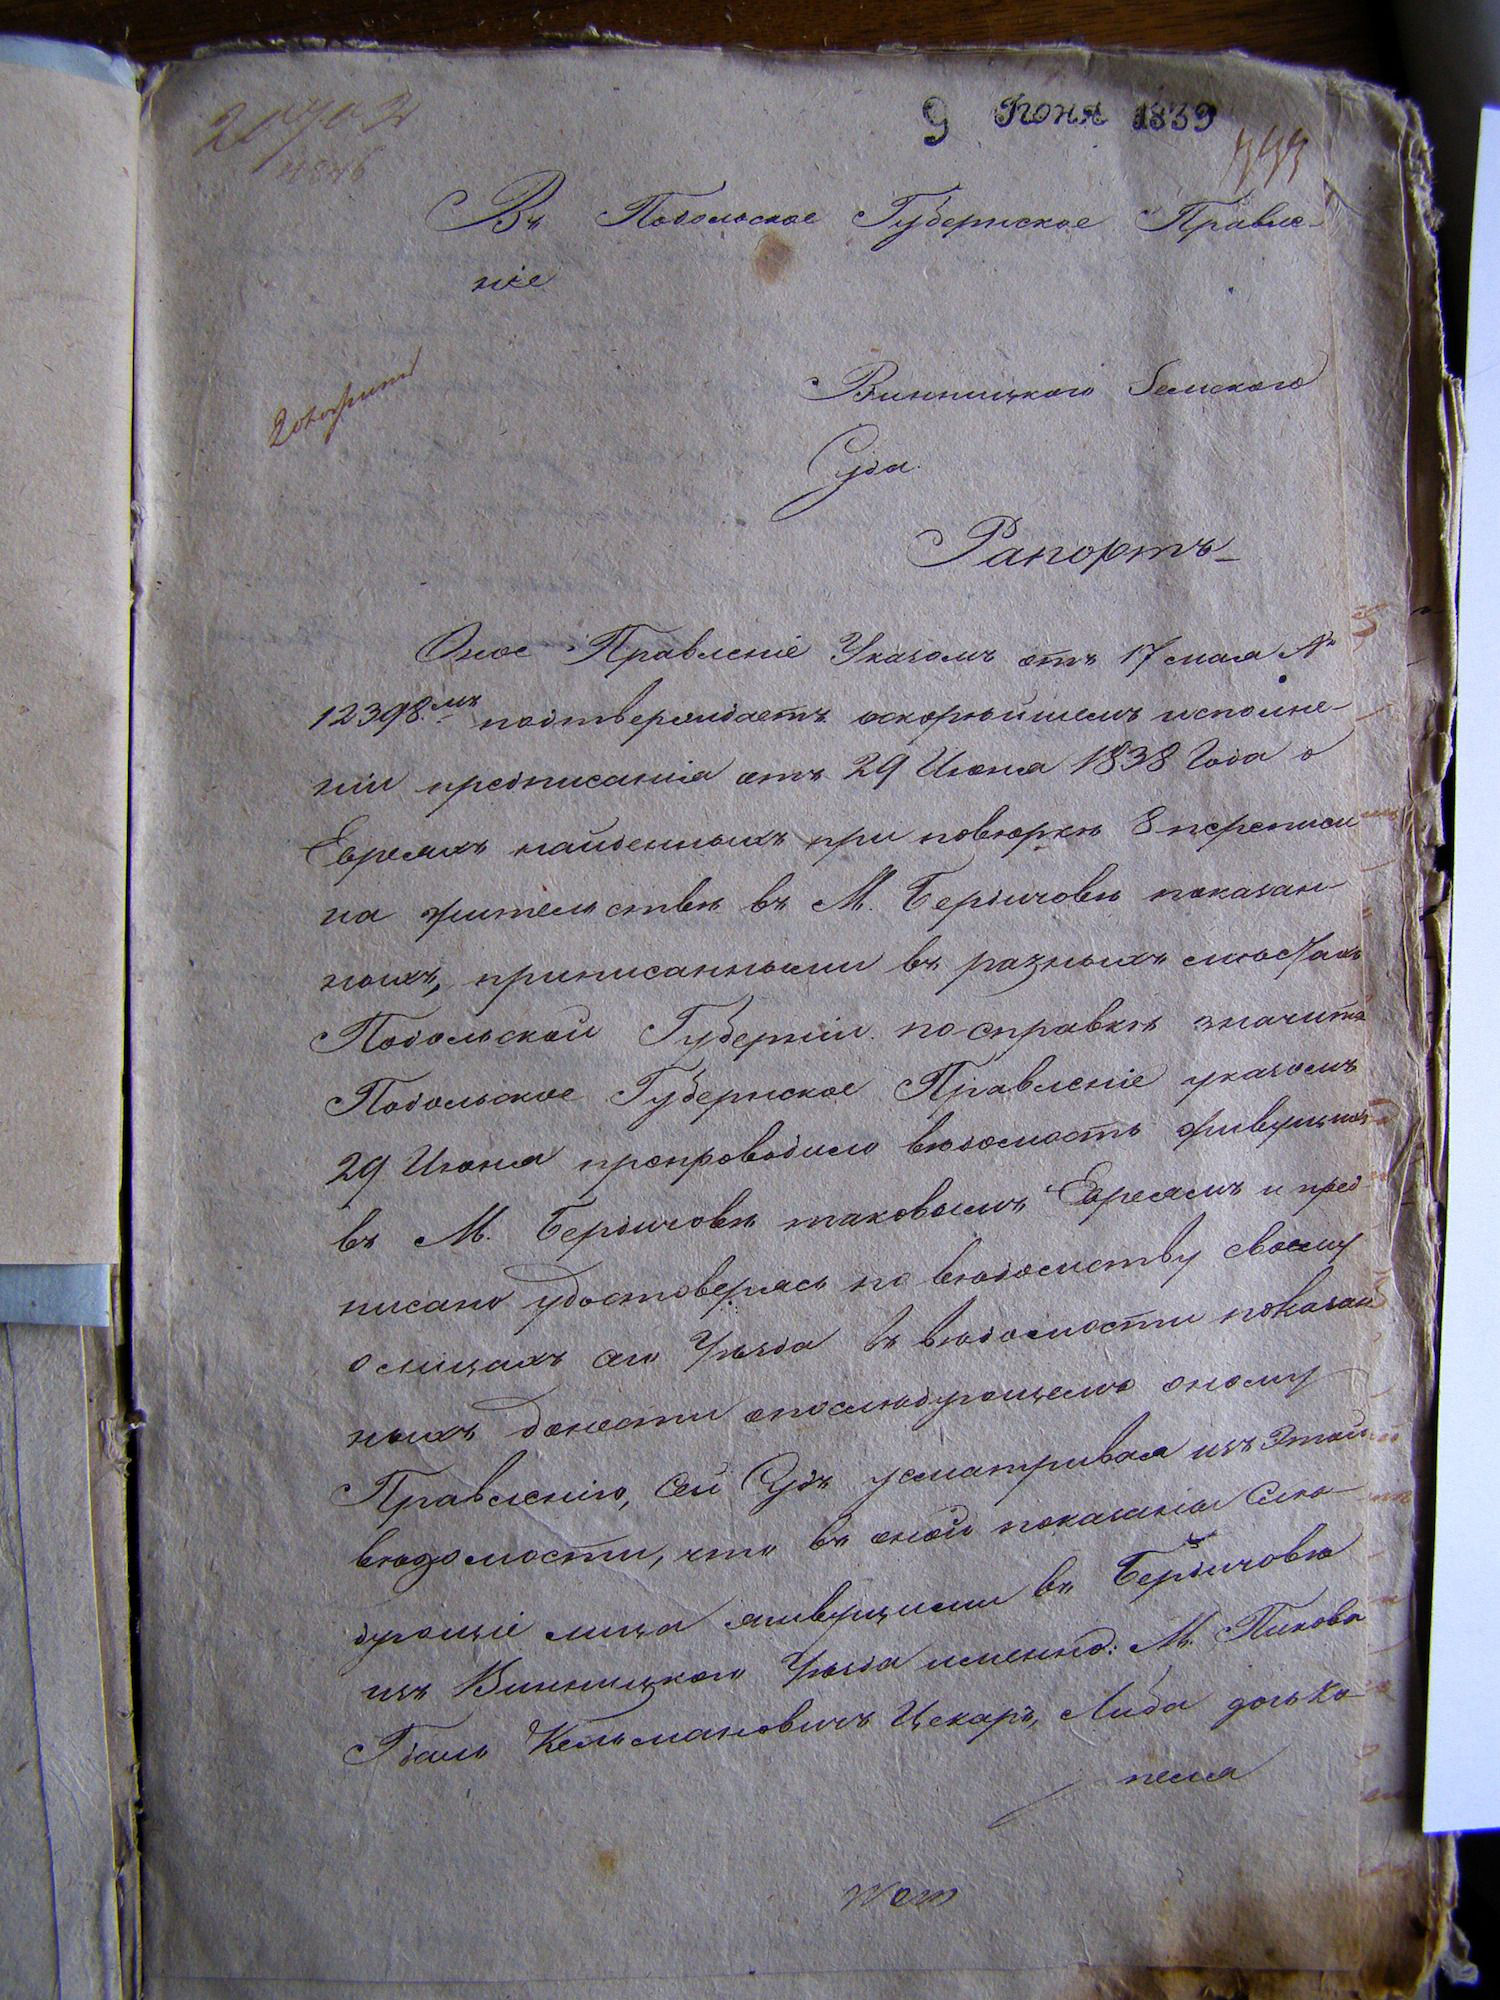 9 Июня 1839
Въ Подольское Губернское Правле-
ніе
Винницкого Земского
Суда
Рапортъ
Оное Правленіе Указомъ отъ 17 мая №
12398.мъ подтверждаетъ оскорѣйшемъ исполне-
ніи предписанія отъ 29 Июня 1838 Года о
Евреяхъ найденныхъ при повѣркѣ 8 переписи
на жительствѣ въ М. Бердичовѣ показан-
ныхъ, приписанными въ разныхъ мѣстахъ
Подольской Губерніи. по справкѣ значитъ
Подольское Губернское Правленіе указомъ
29 Июня препроводило вѣдомость живущихъ
въ М. Бердичовѣ таковымъ Евреямъ и пред-
писано удостоверясь по вѣдомству своему
о лицахъ сего Уѣзда въ вѣдомости показан
ныхъ донести опослѣдующемъ оному
Правленію, Сей Судъ усматривая изъ Этой
вѣдомости, что въ оной показаніи Слѣ-
дующіе лица живущими въ Бердичовѣ
изъ Винницкого Уѣзда именно: М. Пикова
Гдаль Кельмановичъ Цекаръ, Либа дочь Ко-
пеля